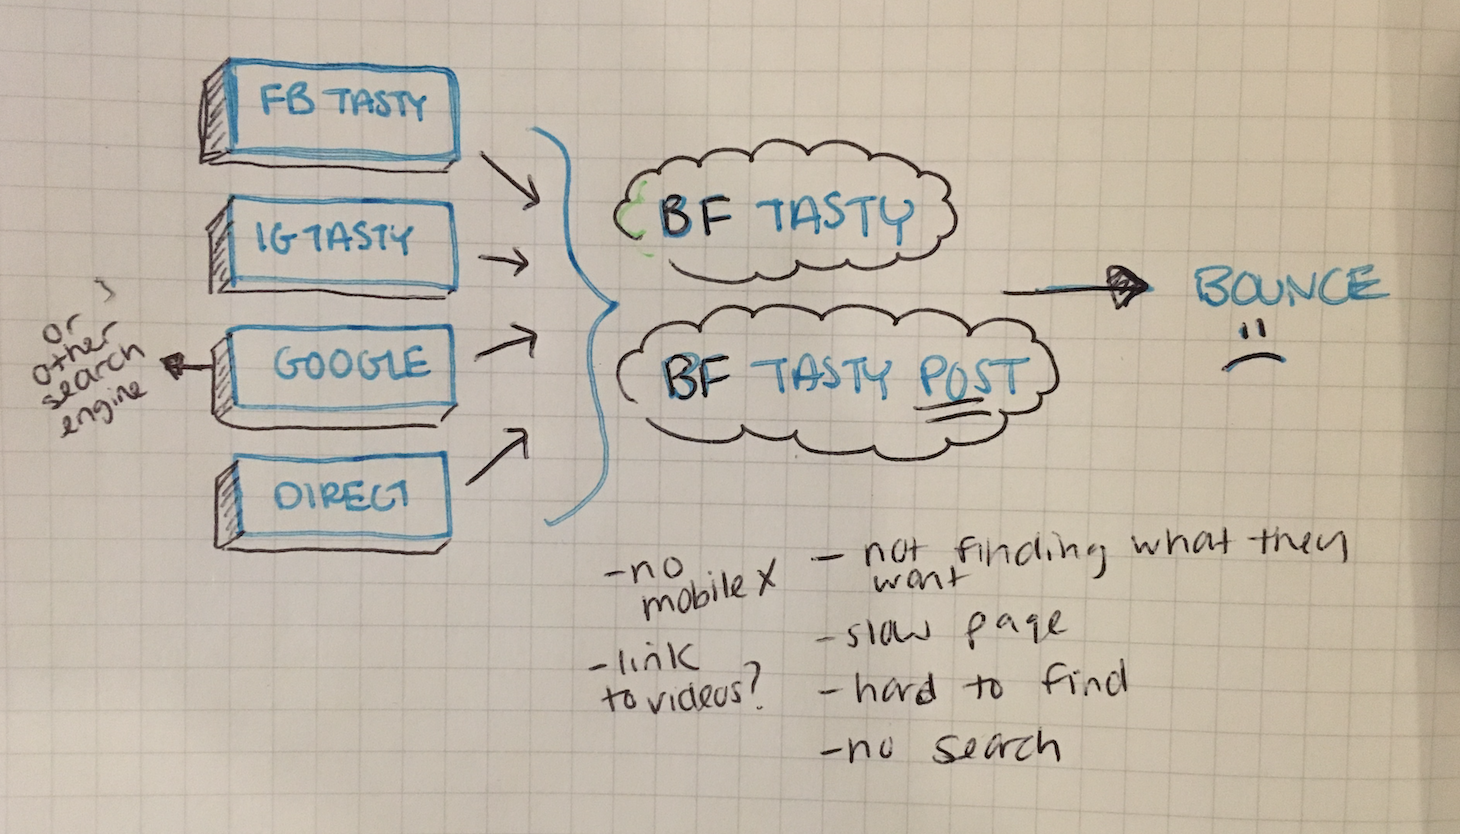 FB TASTY
IG TASTY
or
other
search
engine
GOOGLE
DIRECT
BF TASTY
BF TASTY POST
BOUNCE
-no
mobile X
-link
to videos?
- not finding what they
want
-slow page
-hard to find
-no search